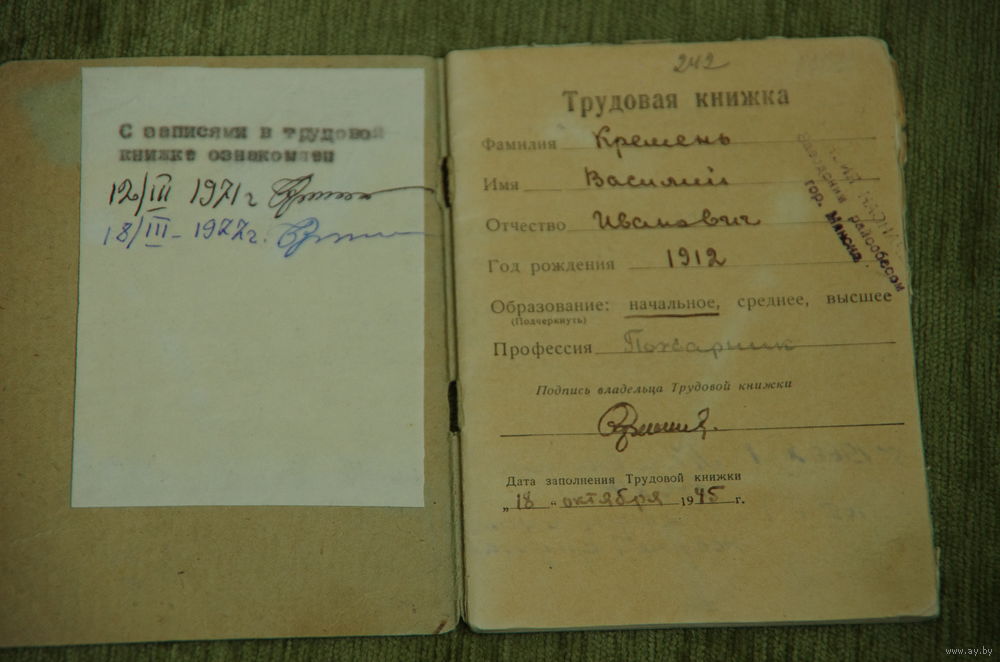 С записями в трудовой
книжке ознакомлен
12/III 1971г
18/III-1977г.
242
Трудовая книжка
Фамилия Кремень
Имя Василий
Отчество Иванович
Год рождения 1912
Образование: начальное, среднее, высшее
(Подчеркнуть)
Профессия Пожарник
Подпись владельца Трудовой книжки
Дата заполнения Трудовой книжки
„18“ октября 1945 г.
гор. Минска
www.ay.by